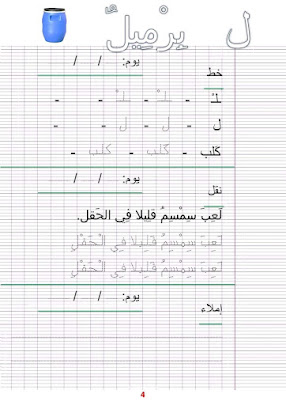 ل بِرْمِيلٌ
يوم: / /
خط
لـ - لـ - لـ -
ل - ل - ل -
كَلب - كَلب - كلب -
يوم: / /
نقل
لَعِبَ سِمْسِمُ قَلِيلا فِي الحَقل.
لَعِبَ سِمْسِمُ قَلِيلا فِي الْحَقْلِ
لَعِبَ سِمْسِمُ قَلِيلا فِي الْحَقْلِ
يوم: / /
إملاء
4